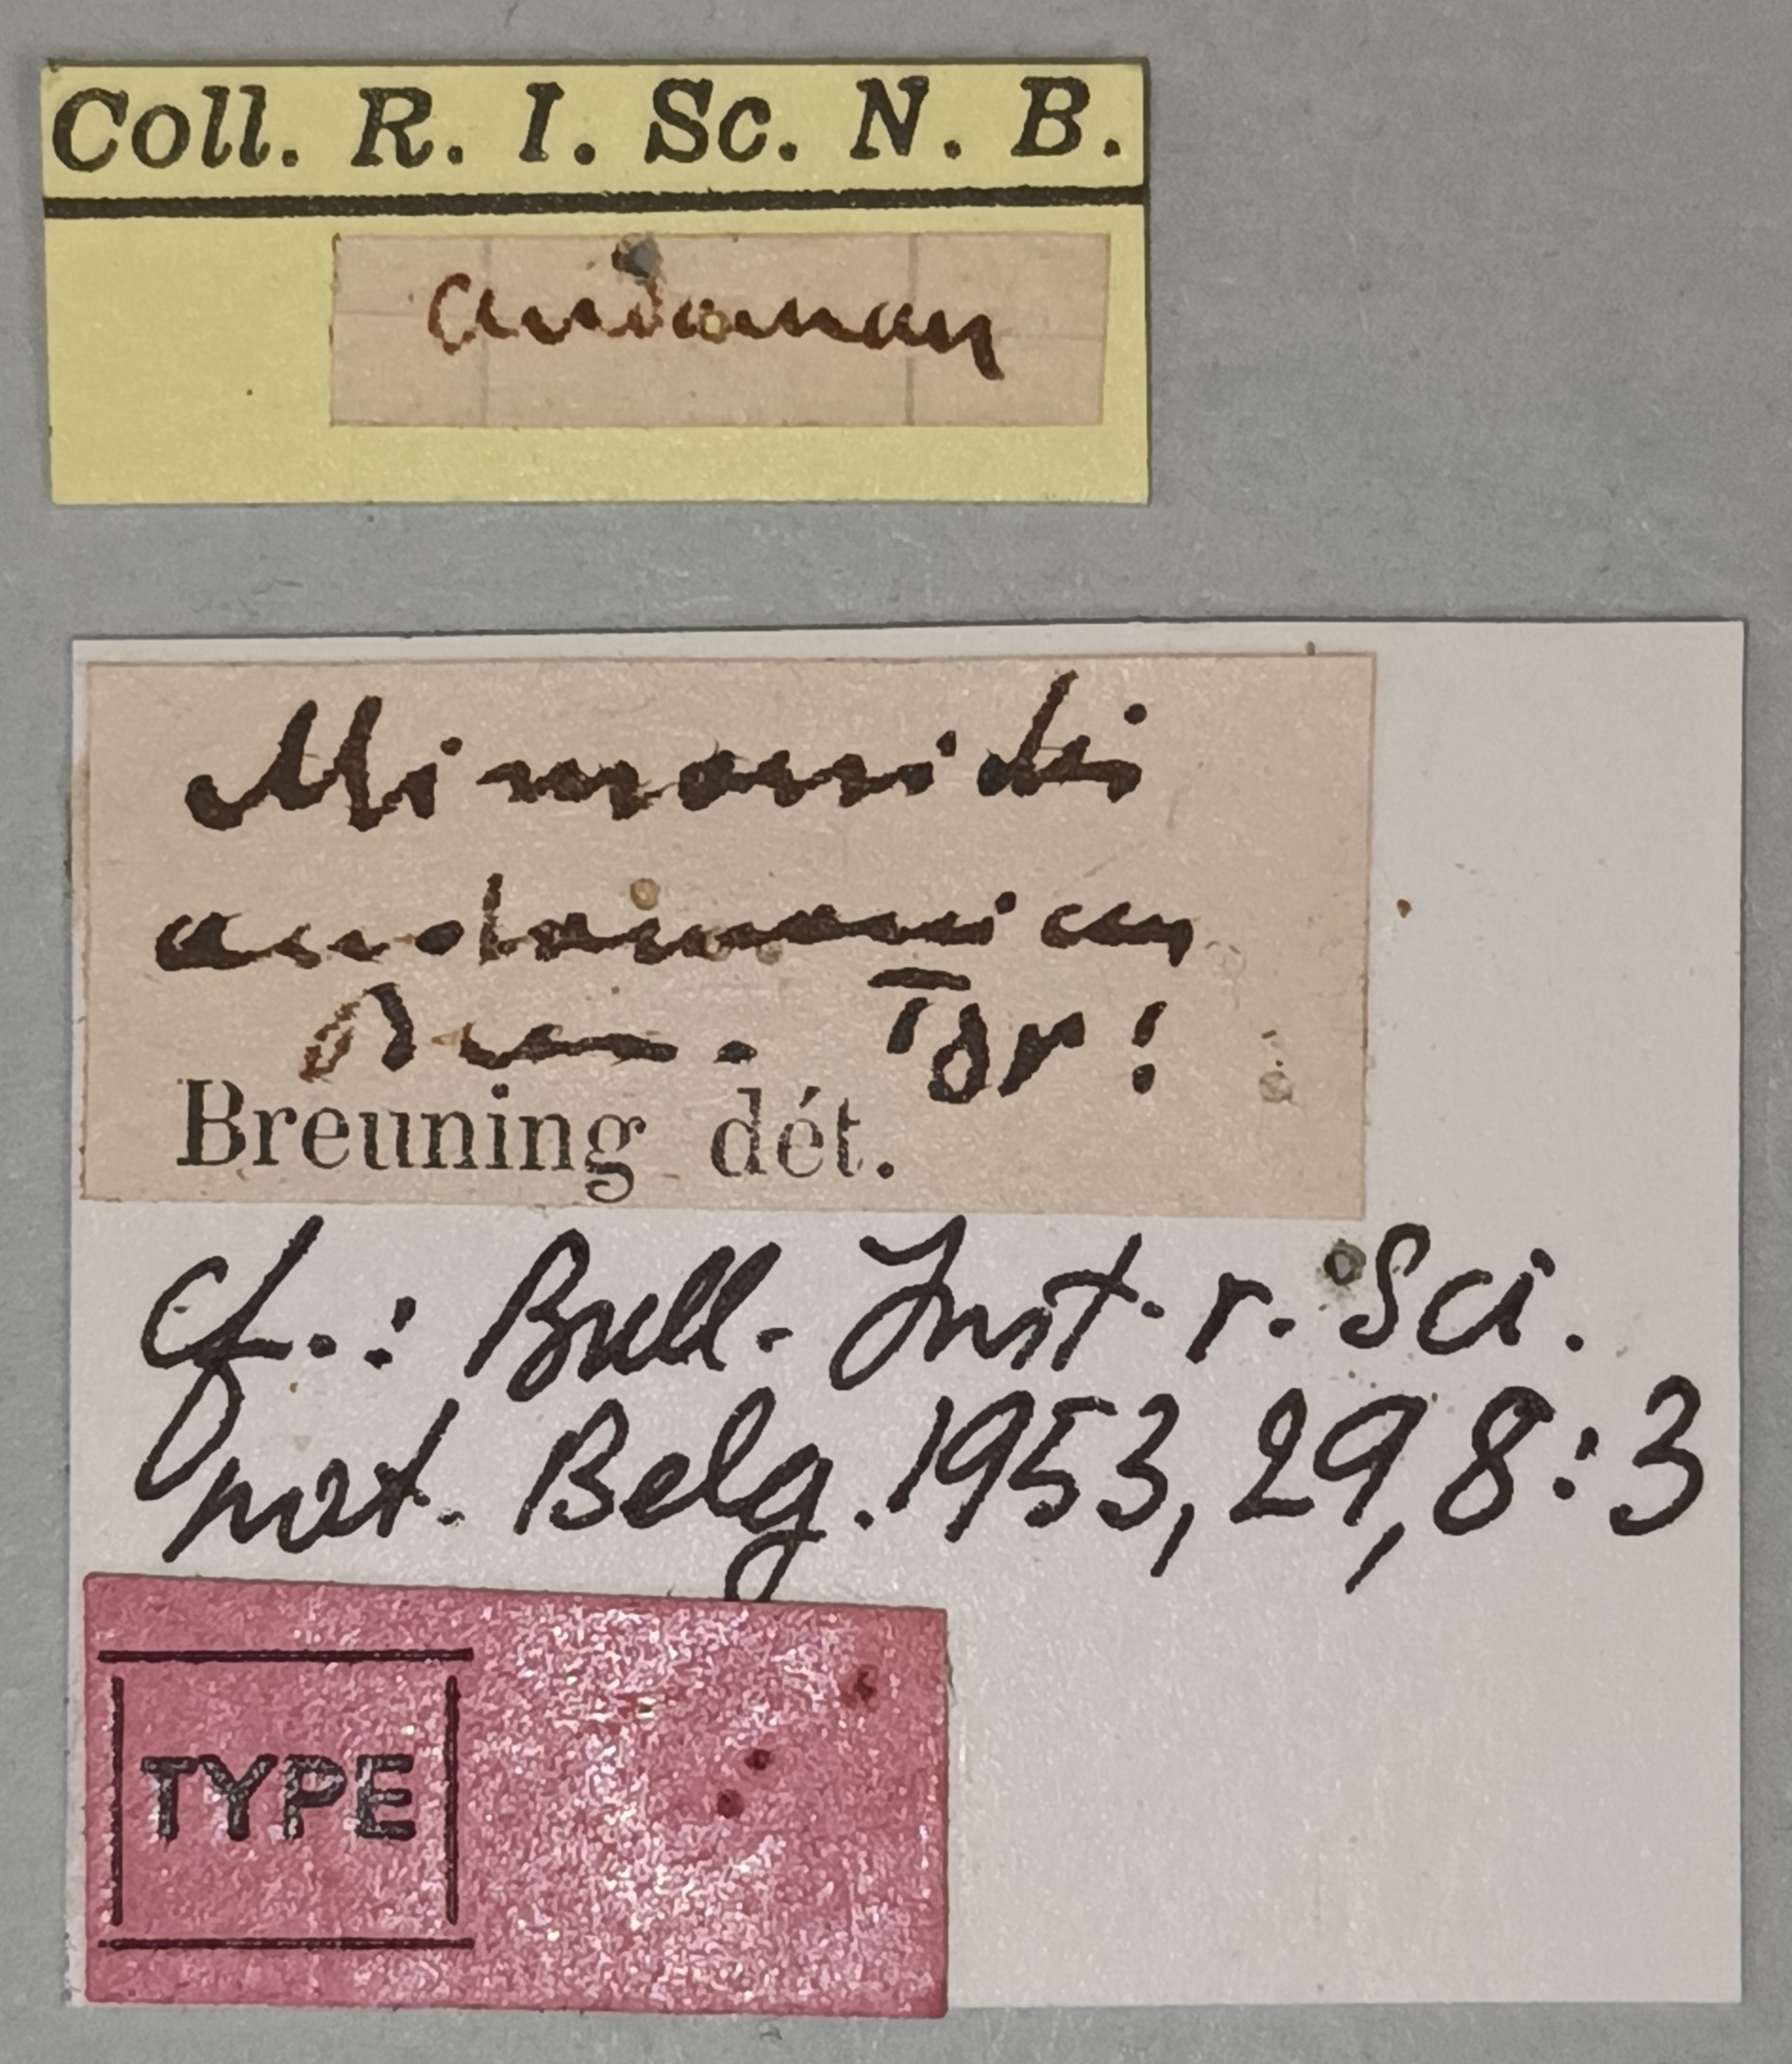 Coll. R. I. Sc. N. B.
andaman
Mimovitis
andamanicus
Breun. Typ!
Breuning dét.
cf.: Bull. Inst. r. Sci.
nat. Belg. 1953, 29, 8: 3
TYPE